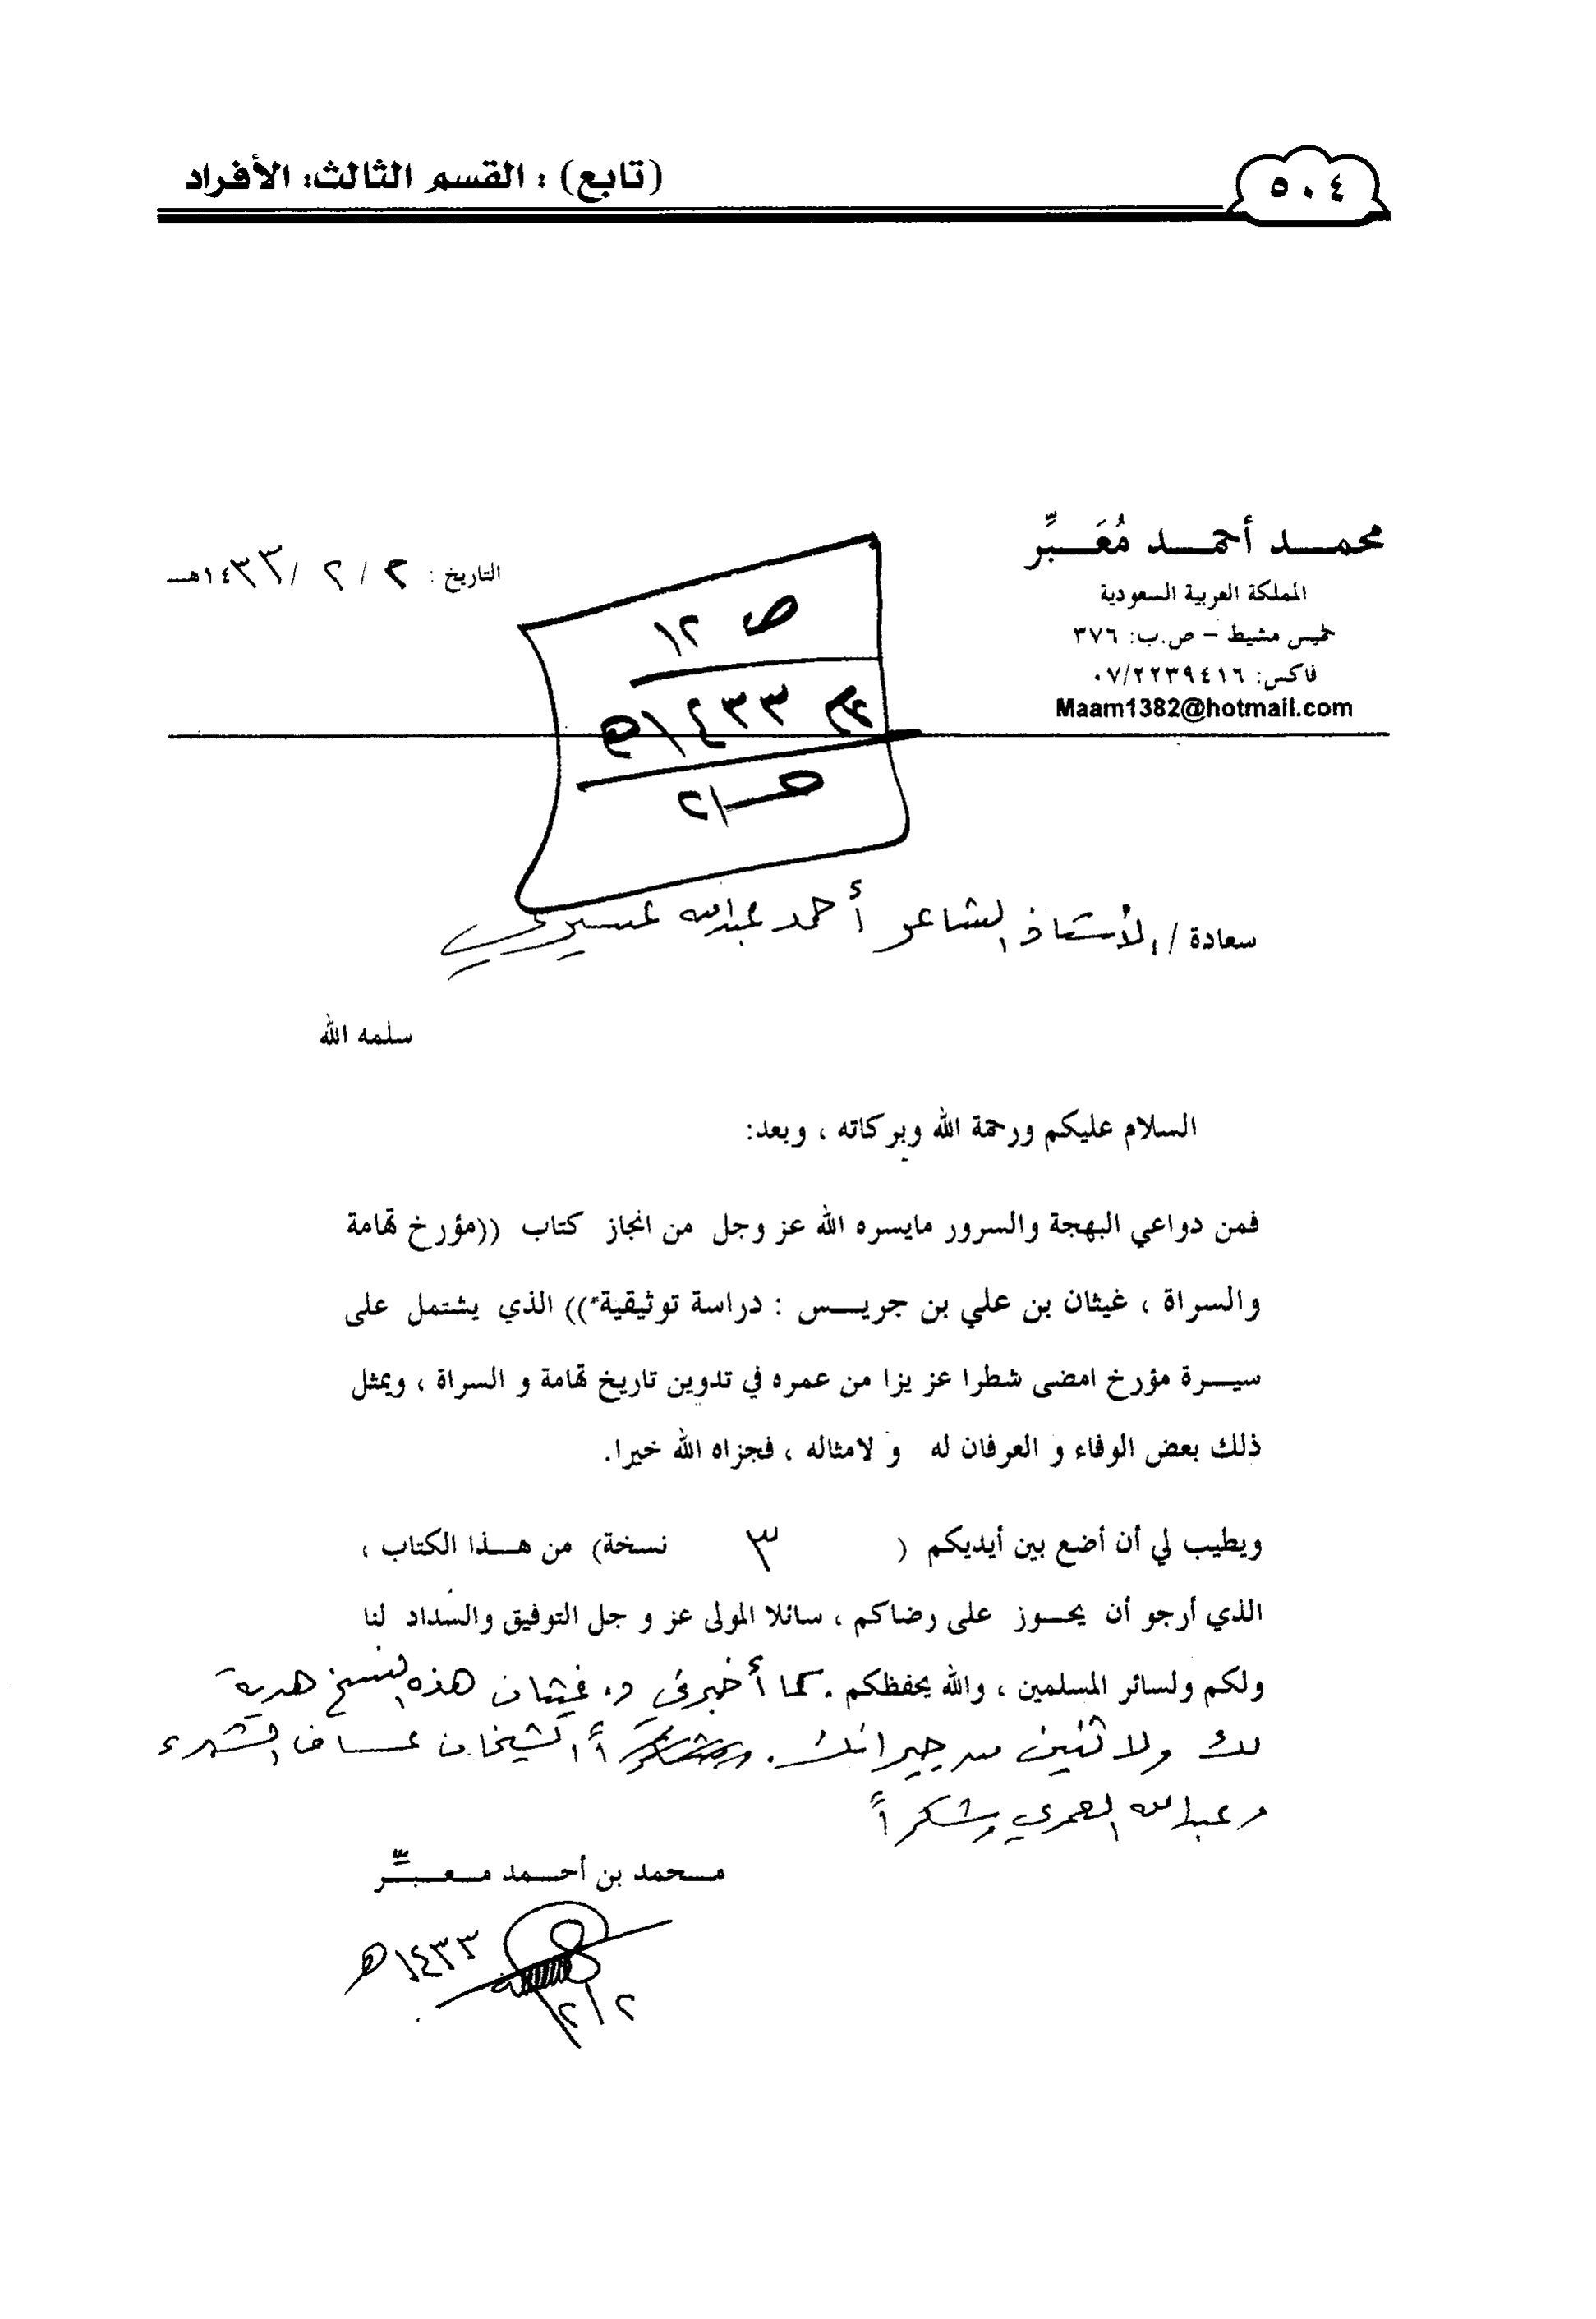 ٥٠٤
(تابع) : القسم الثالث: الأفراد
محمد أحمد مُعَبِّر
المملكة العربية السعودية
خميس مشيط – ص.ب: ٣٧٦
فاكس: ٠٧/٢٢٣٩٤١٦
Maam1382@hotmail.com
التاريخ : ٢ / ٢ / ١٤٣٣هـ
ص ١٢
١٤٣٣هـ
سعادة / الأستاذ الشاعر أحمد عبدالله عسيري
سلمه الله
السلام عليكم ورحمة الله وبركاته ، وبعد:
فمن دواعي البهجة والسرور مايسره الله عز وجل من انجاز كتاب ((مؤرخ تهامة
والسراة ، غيثان بن علي بن جريس : دراسة توثيقية)) الذي يشتمل على
سيرة مؤرخ امضى شطرا عزيزا من عمره في تدوين تاريخ تهامة و السراة ، ويمثل
ذلك بعض الوفاء و العرفان له و لامثاله ، فجزاه الله خيرا.
ويطيب لي أن أضع بين أيديكم ( ٣ نسخة) من هذا الكتاب ،
الذي أرجو أن يحوز على رضاكم ، سائلا المولى عز و جل التوفيق والسداد لنا
ولكم ولسائر المسلمين ، والله يحفظكم . كما أخبرني د. غيثان هذه النسخ هدية
لك ولاثنين من جيرانك. الشيخان عساف الشهري
وعبدالله العمري وشكراً
محمد بن أحمد معبِّر
١٤٣٣هـ
٢/٢